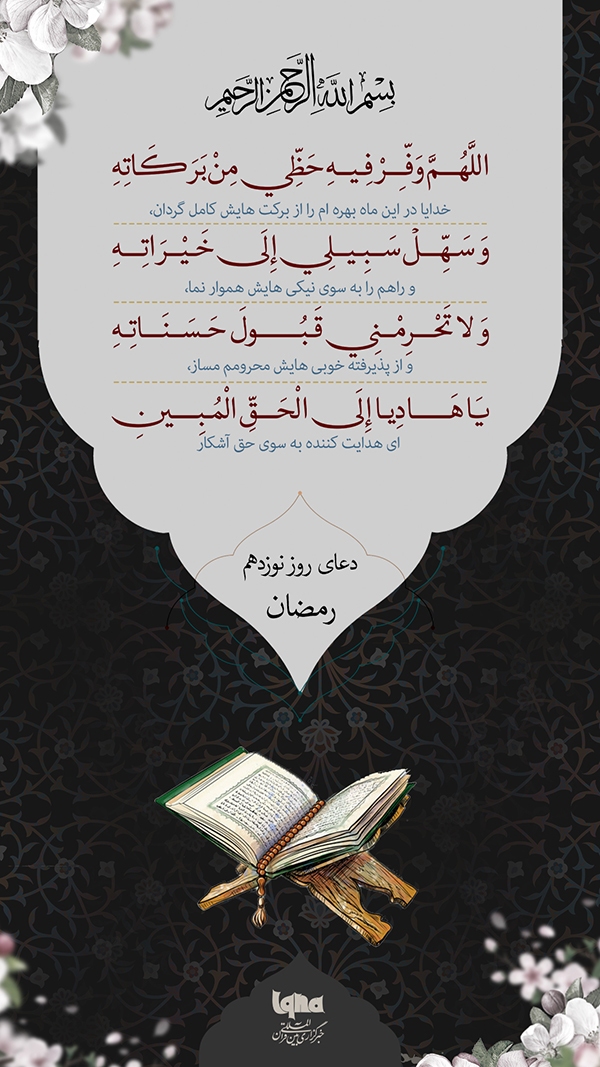 بِسْمِ اللَّهِ الرَّحْمَنِ الرَّحِيمِ
اللَّهُمَّ وَفِّرْ فِيهِ حَظِّي مِنْ بَرَكَاتِهِ
خدایا در این ماه بهره ام را از برکت هایش کامل گردان،
وَ سَهِّلْ سَبِيلِي إِلَى خَيْرَاتِهِ
و راهم را به سوی نیکی هایش هموار نما،
وَ لا تَحْرِمْنِي قَبُولَ حَسَنَاتِهِ
و از پذیرفته خوبی هایش محرومم مساز،
يَا هَادِيا إِلَى الْحَقِّ الْمُبِينِ
ای هدایت کننده به سوی حق آشکار
دعای روز نوزدهم
رمضان
iqna
خبرگزاری بین المللی قرآن